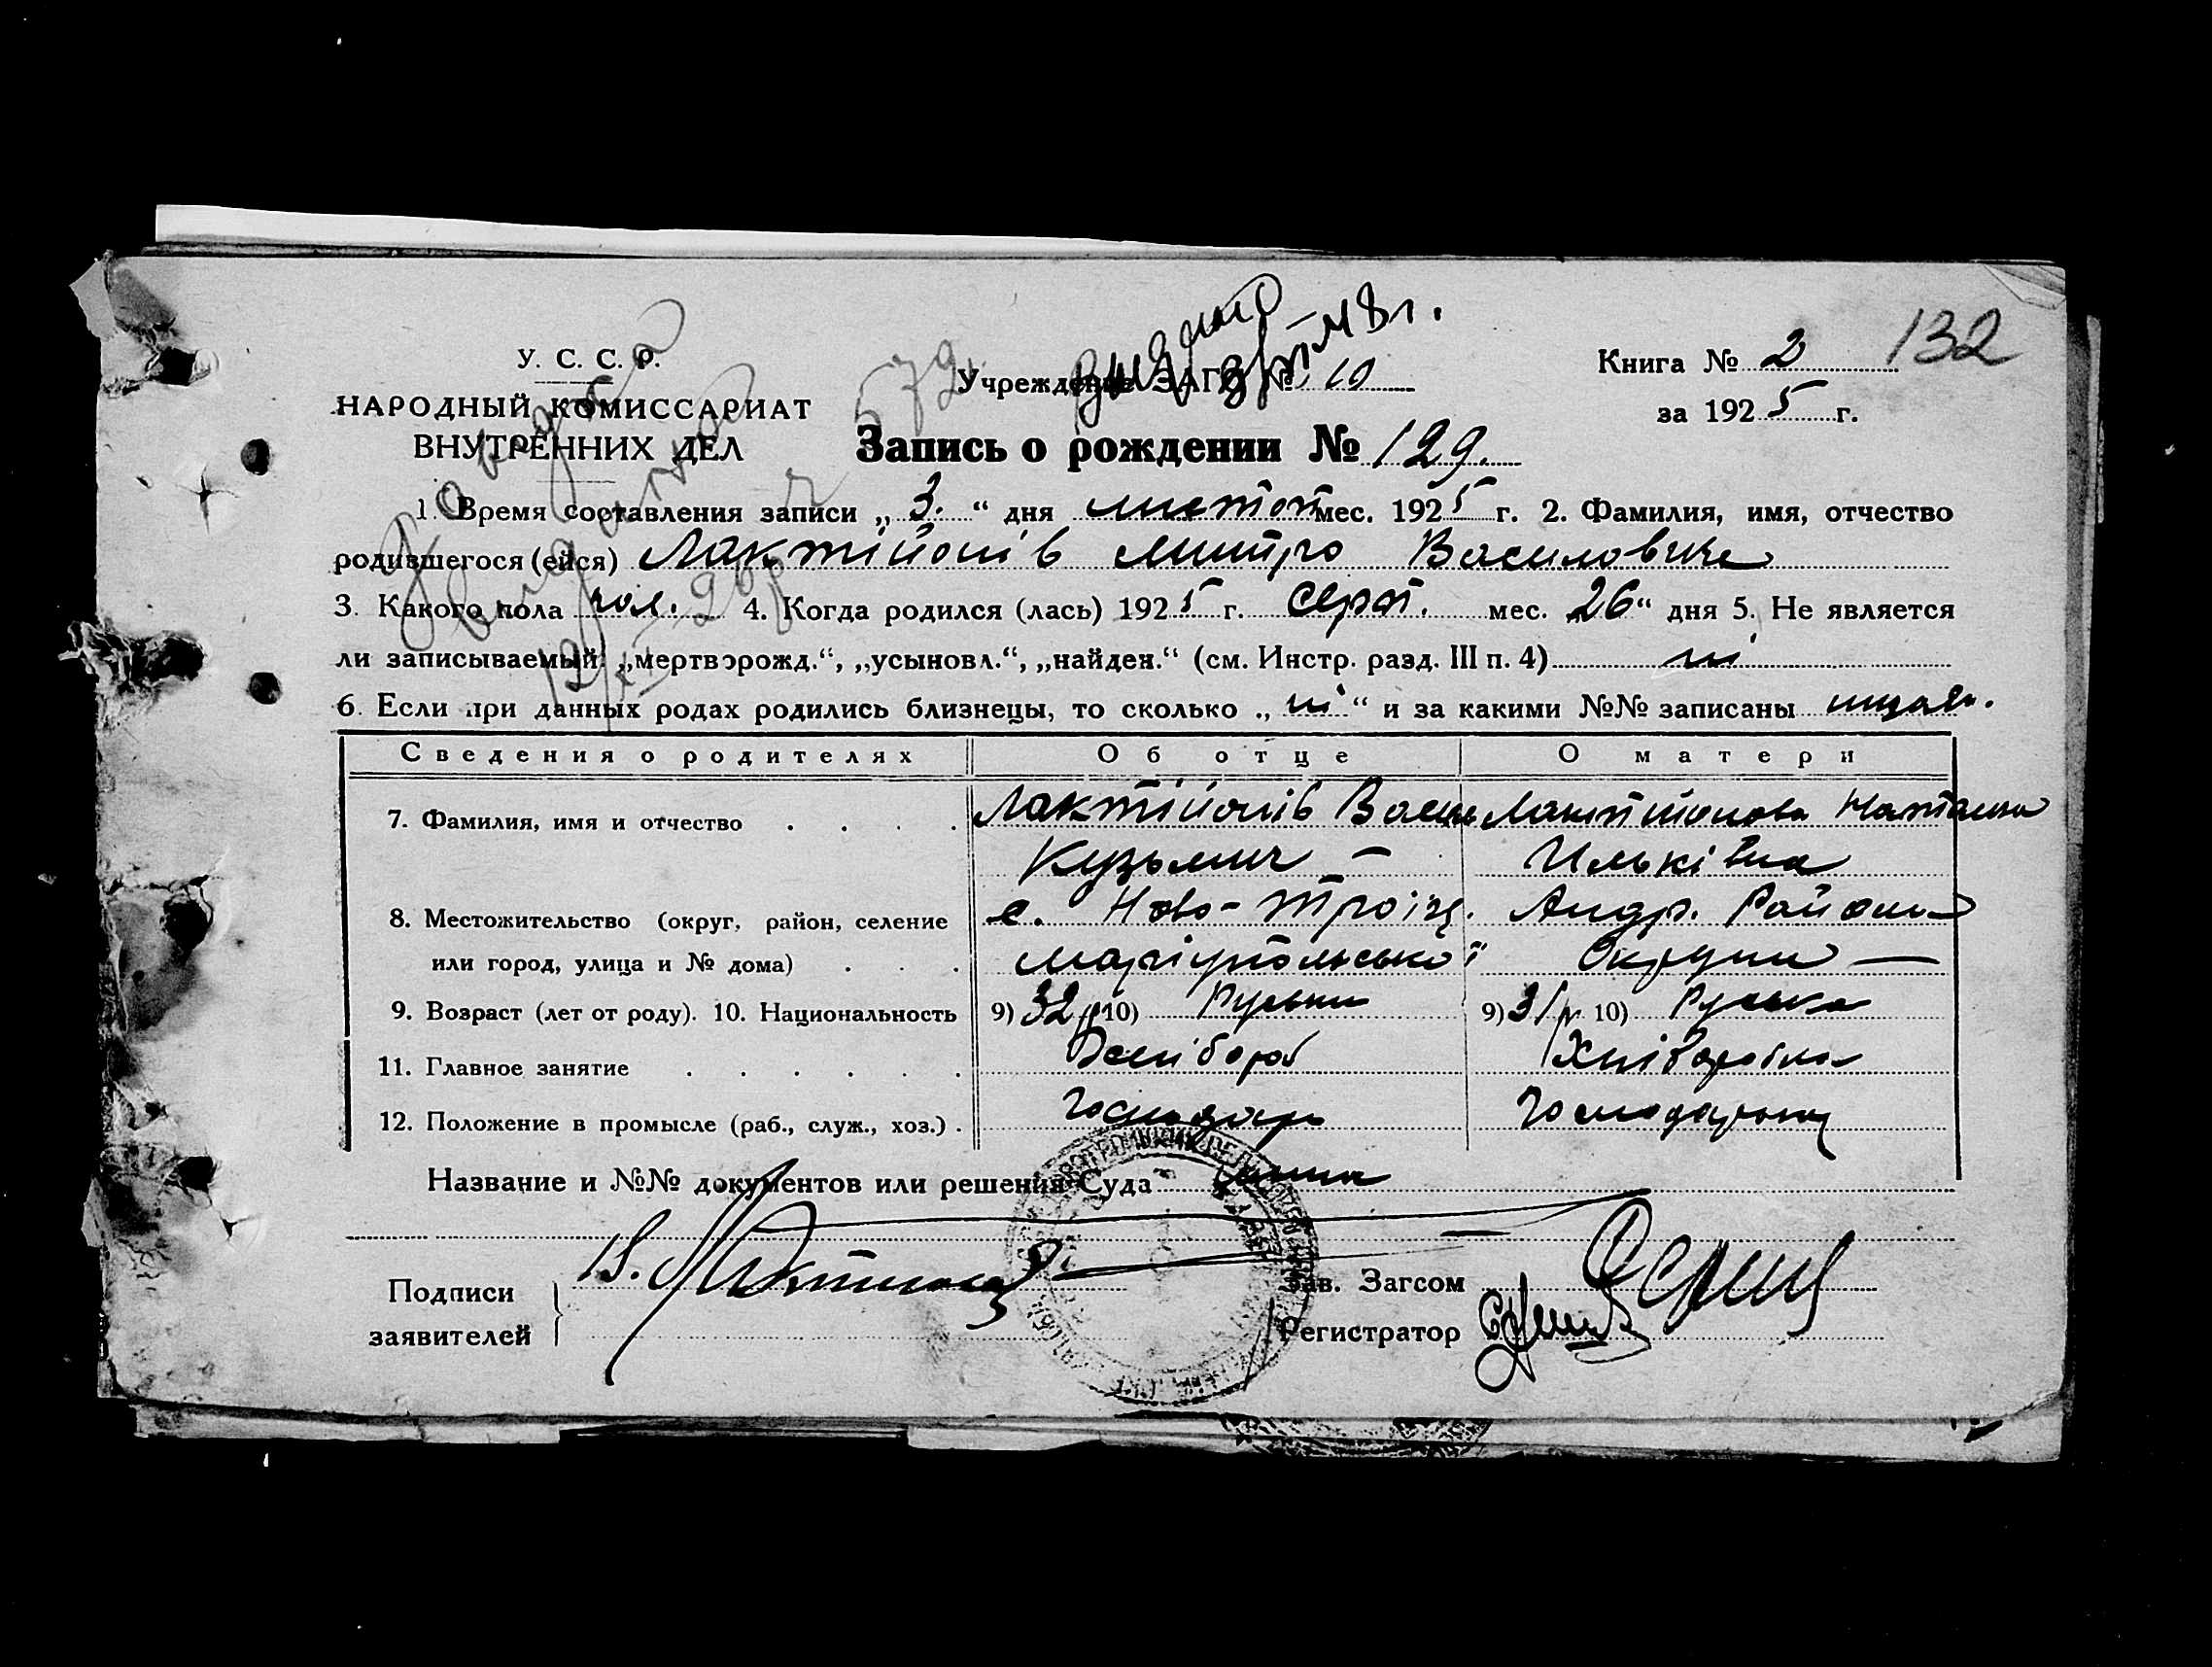 132
У. С. С. Р.
НАРОДНЫЙ КОМИССАРИАТ
ВНУТРЕННИХ ДЕЛ
572
Учреждение ЗАГС № 10
Книга № 2
за 1925 г.
Запись о рождении № 129.
1. Время составления записи „ 3. “ дня листоп мес. 1925 г. 2. Фамилия, имя, отчество
родившегося (ейся) Лактійонів Митро Василовичь
3. Какого пола чол. 4. Когда родился (лась) 1925 г. серп. мес. „26“ дня 5. Не является
ли записываемый: „мертворожд.“, „усыновл.“, „найден.“ (см. Инстр. разд. III п. 4) ні
6. Если при данных родах родились близнецы, то сколько „ ні “ и за какими №№ записаны
Сведения о родителях Об отце О матери
7. Фамилия, имя и отчество . . . . Лактійонів Василь Лактионова Наталия
Кузьмич — Ильківна
8. Местожительство (округ, район, селение с. Ново-Троіцк. Андр. Району
или город, улица и № дома) . . . Маріупольської Округи —
9. Возраст (лет от роду). 10. Национальность 9) 32 р. 10) Руський 9) 31 р. 10) Руська
11. Главное занятие . . . . . . Хлібороб Хліборобка
12. Положение в промысле (раб., служ., хоз.) . Господарь
Название и №№ документов или решения Суда
Подписи
заявителей
В. Лактионов
Зав. Загсом
Регистратор